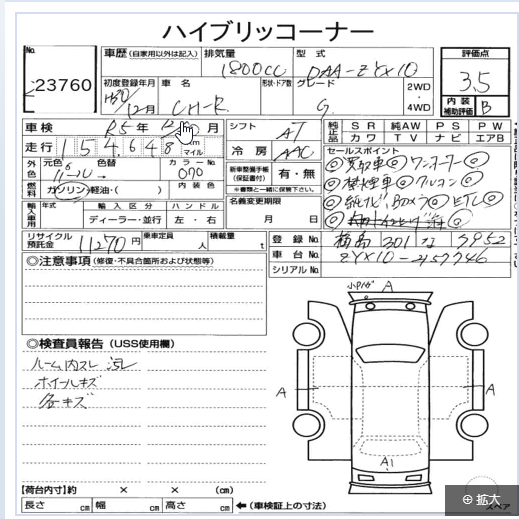 ハイブリッコーナー
No.
23760
車歴 (自家用以外は記入)
排気量
1800CC
型式
DAA-ZYX10
評価点
3.5
初度登録年月
H30/12月
車名
CH-R
形状・ドア数
グレード
G
2WD
・
4WD
内装
補助評価
B
車検
R5年12月
シフト
AT
純正品
SR 純AW PS PW
カワ TV ナビ エアB
走行
154,648
km
マイル
冷房
AAC
セールスポイント
◎買取車◎ワンオーナー◎
外色
元色
色替
カラーNo
070
新車整備手帳
(保証書付)
有・無
※書類と一緒に保管下さい。
◎禁煙車◎
燃料
ガソリン・軽油・( )
内装色
名義変更期限
月 日
◎ ETC
輸入車用
年式
輸入区分
ディーラー・並行
ハンドル
左・右
リサイクル
預託金
11270円
乗車定員
人
積載量
t
登録No.
301 3952
車台No.
ZYX10-2157746
シリアルNo.
◎注意事項 (修復・不具合箇所および状態等)
◎検査員報告 (USS使用欄)
ルーム内スレ 汚レ
ホイールキズ
各キズ
A
A
A
A1
【荷台内寸】約 × × (cm)
長さ cm 幅 cm 高さ cm ←(車検証上の寸法)
スペア
⊕ 拡大